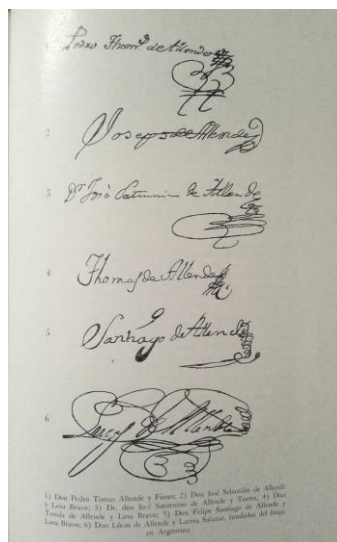 Pedro Thom.s de Allende
2 Joseph de Allende
3 D.r José Saturnino de Allende
4 Thomas de Allende
5 Santiago de Allende
6 Lucas de Allende
1) Don Pedro Tomas Allende y Funes; 2) Don José Sebastián de Allende
y Losa Bravo; 3) Dr. don José Saturnino de Allende y Torres; 4) Don
Tomás de Allende y Losa Bravo; 5) Don Felipe Santiago de Allende y
Losa Bravo; 6) Don Lúcas de Allende y Larrea Salazar, fundador del linaje
en Argentina